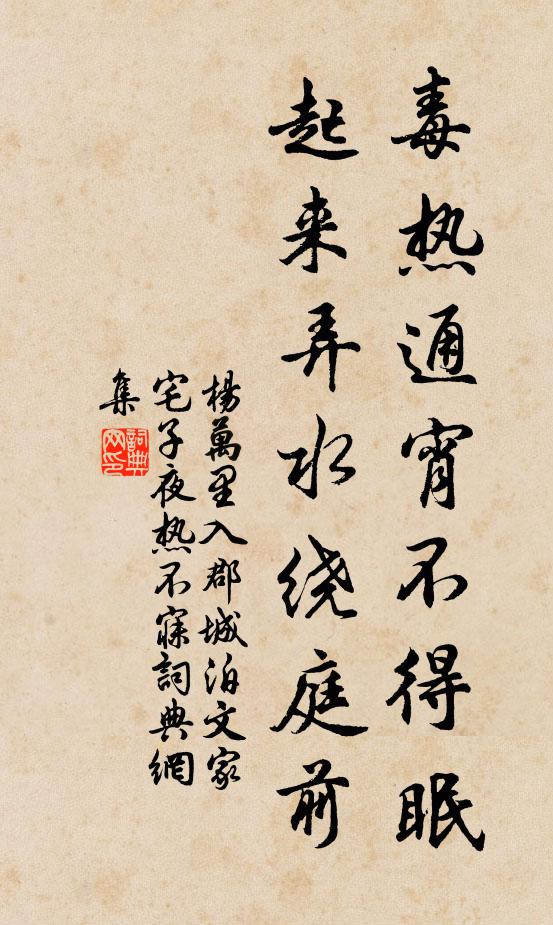 毒热通宵不得眠
起来弄水绕庭前
楊萬里入郡城泊文家
宅子夜热不寐詞典網
集
詞典
网印